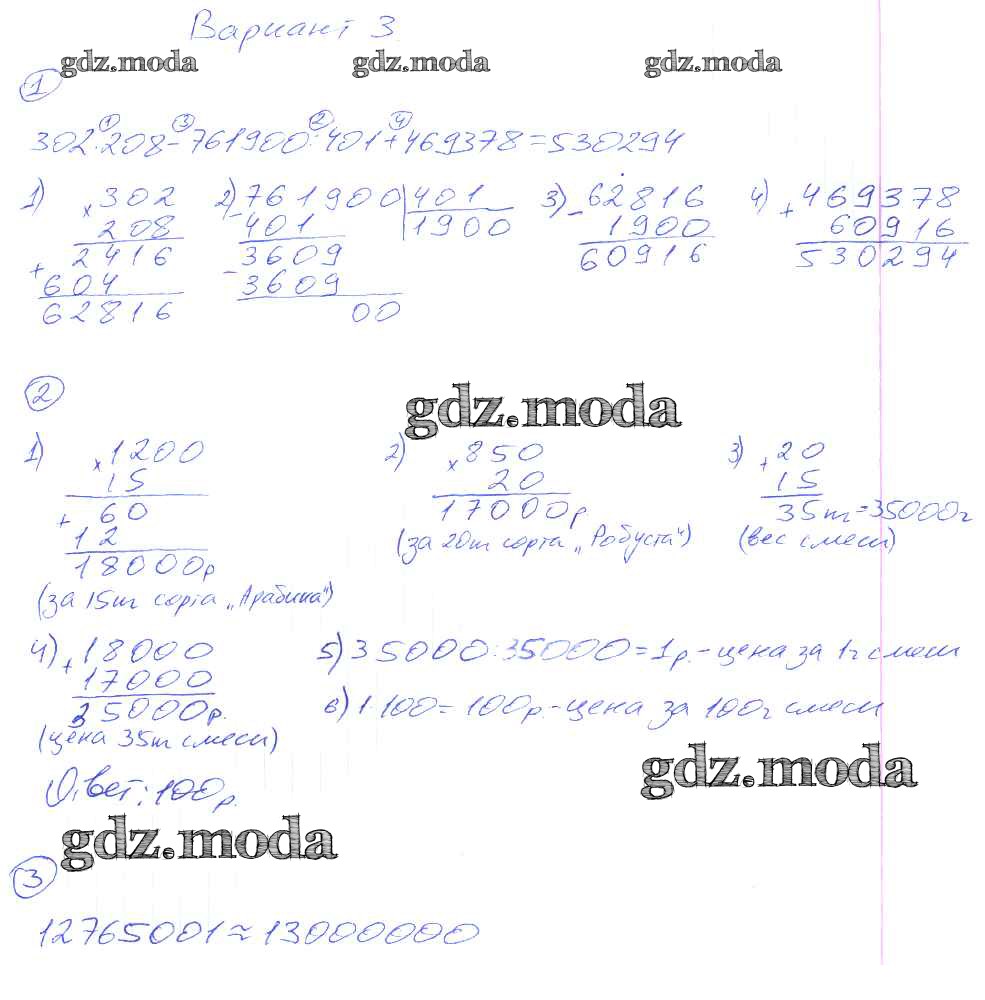 Вариант 3
gdz.moda gdz.moda gdz.moda
1
1 3 2 4
302·208-761900:401+469378=530294
1) × 302
208
+ 2416
604
62816
2) 761900 | 401
- 401 1900
3609
- 3609
00
3) - 62816
1900
60916
4) + 469378
60916
530294
2
gdz.moda
1) × 1200
15
+ 60
12
18000р
(за 15т сорта „Арабика")
2) × 850
20
17000р
(за 20т сорта „Робуста")
3) + 20
15
35т=35000г
(вес смеси)
4) + 18000
17000
35000р.
(цена 35т смеси)
5) 35000:35000=1р.-цена за 1г смеси
6) 1·100=100р.-цена за 100г смеси
gdz.moda
Ответ: 100р.
gdz.moda
3
12765001≈13000000